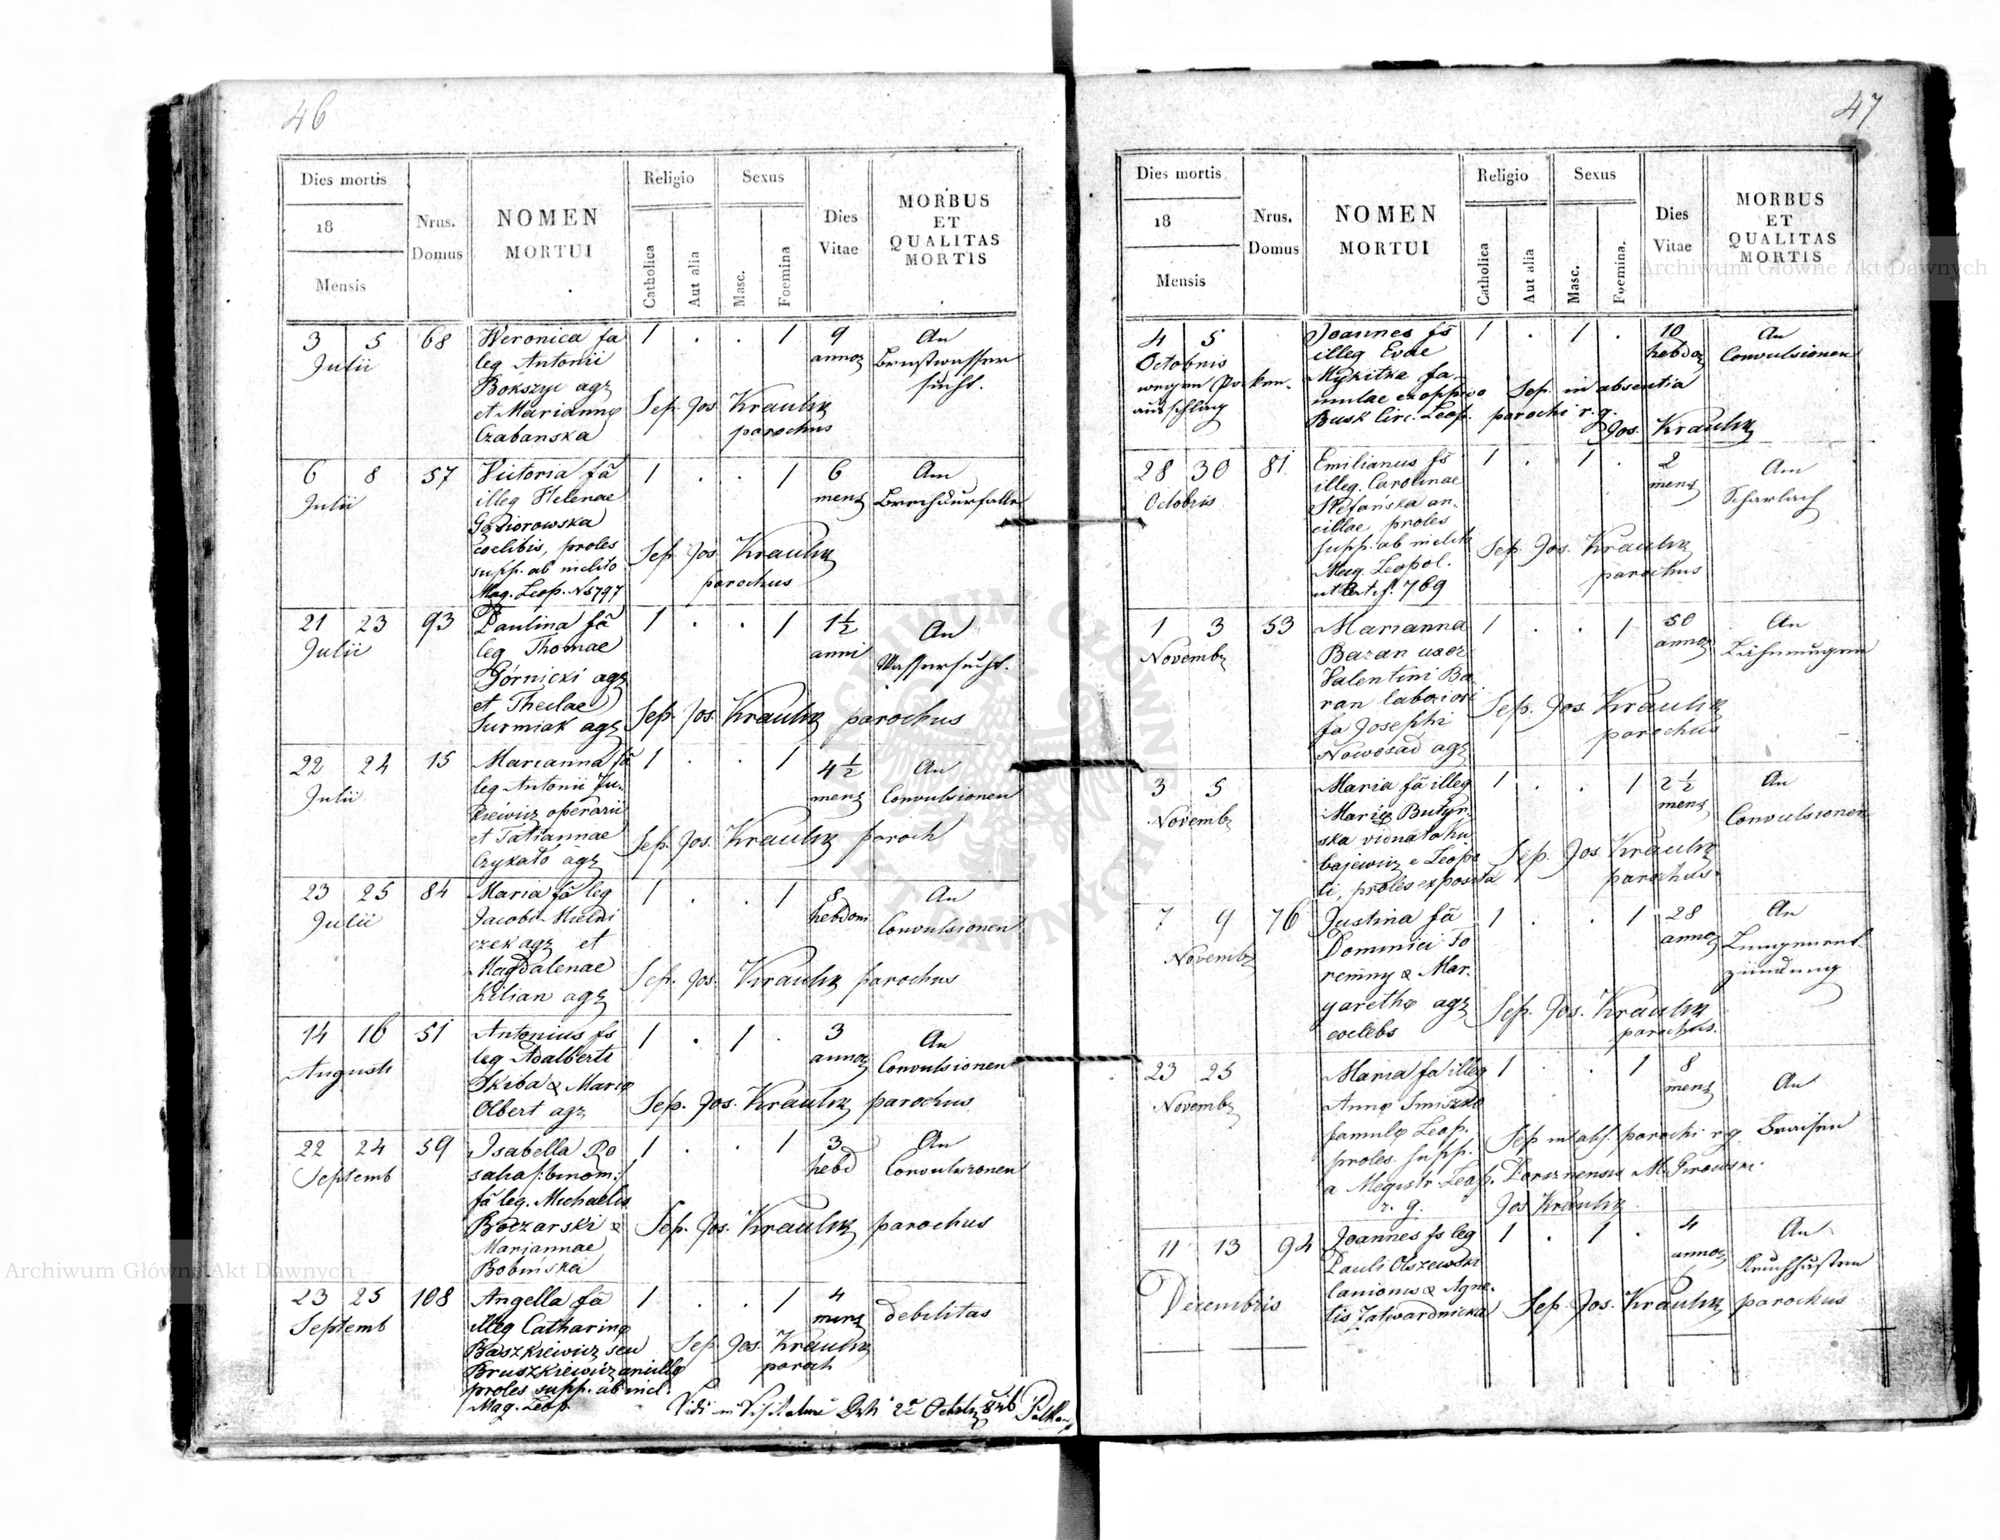 46
Dies mortis
18
Mensis
Nrus.
Domus
NOMEN
MORTUI
Religio
Catholica
Aut alia
Sexus
Masc.
Foemina
Dies
Vitae
MORBUS
ET
QUALITAS
MORTIS
3 5 68 Weronica fa 1 . . 1 9 An
Julii leg Antonii annor
Bokszyc agr sucht.
et Marianne Sep. Jos Kraulik
Czabanska parochus
6 8 57 Victoria fã 1 . . 1 6 Am
Julii illeg Helenae mens Brechdurfalle
Gąsiorowska
coelibis, proles Sep. Jos Kraulik
supp. ab inclito parochus
Mag. Leop. N 5797
21 23 93 Paulina fã 1 . . 1 1½ An
Julii leg Thomae anni Wassersucht.
Górnicki agr
et Theclae Sep. Jos. Kraulik parochus
Surmiak agr
22 24 15 Marianna fã 1 . . 1 4½ An
Julii leg Antonii Ju- mens Convulsionen
kiewicz operarii
et Tatiannae Sep. Jos. Kraulik paroch
Czykało agr
23 25 84 Maria fã leg 1 . . 1 8 An
Julii Jacobi Mield hebdom Convulsionen
czek agr et
Magdalenae Sep. Jos. Kraulik parochus
Kilian agr
14 16 51 Antonius fs 1 . 1 . 3 An
Augusti leg Adalberti annor Convulsionen
Skiba & Marie
Olbert agr Sep. Jos. Kraulik parochus
22 24 59 Isabella Ro 1 . . 1 3 An
Septemb salia /:binom:/ hebd Convulsionen
fã leg. Michaelis
Boczarski & Sep. Jos. Kraulik parochus
Mariannae
Bobińska
23 25 108 Angella fã 1 . . 1 4 debilitas
Septemb illeg Catharine mens
Baszkiewicz seu Sep. Jos. Kraulik
Bruszkiewicz ancille paroch
proles supp. ab incl.
Mag. Leop.
Vidi in
47
Dies mortis
18
Mensis
Nrus.
Domus
NOMEN
MORTUI
Religio
Catholica
Aut alia
Sexus
Masc.
Foemina.
Dies
Vitae
MORBUS
ET
QUALITAS
MORTIS
4 5 . Joannes fs 1 . 1 . 10 An
Octobris illeg Evae hebdo Convulsionen
wegen Pocken- Mykitka fa- Sep. in absentia
ausschlag mulae ex oppido parochi r. g.
Busk Circ. Leop. Jos. Kraulik
28 30 81 Emilianus fs 1 . 1 . 2 Am
Octobris illeg. Carolinae mens Scharlach
Stefańska an-
cillae, proles
supp. ab inclito Sep. Jos. Kraulik
Mag. Leopol. parochus
1 3 53 Marianna 1 . . 1 50 An
Novembr Bazan uxor annor Lähmungen
Valentini Ba-
zan laboriosi Sep. Jos. Kraulik
fa Josephi parochus
Nowosad agr
3 5 Maria fã illeg 1 . . 1 2½ An
Novemb Marie Butyn- mens Convulsionen
ska
Sep. Jos Kraulik
li, proles exposita parochus
7 9 76 Justina fã 1 . . 1 28 An
Novembr Dominici annor Lungenent-
& Mar- zündung
garethe agr Sep. Jos. Kraulik
coelebs parochus.
23 25 Maria fa illeg 1 . . 1 8 An
Novembr Anne mens
famule Leop. Sep in abs. parochi r g
proles supp.
a Magistr. Leop.
r. g. Jos Kraulik
11 13 94 Joannes fs leg 1 . 1 . 4 An
Decembris Pauli Olszewski annor
lanionis & Agne-
tis Zatwardnicka Sep. Jos. Kraulik parochus
Archiwum Główne Akt Dawnych
Archiwum Główne Akt Dawnych
ARCHIWUM GŁÓWNE AKT DAWNYCH